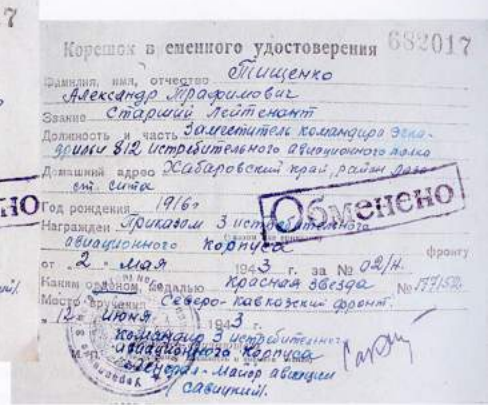 7
Корешок в еменного удостоверения 682017
Фамилия, имя, отчество Тищенко
Александр Трафимович
Звание Старший Лейтенант
Должность и часть Заместитель командира Эска-
дрильи 812 истребительного авиационного полка
Домашний адрес Хабаровский край, район Лазо
ст. Сита
НО
Год рождения 1916г
Обменено
Награжден Приказом 3 истребительного
авиационного корпуса
фронту
от "2" мая 1943 г. за № 02/н.
Каким орденом, медалью Красная звезда № 77152
Место вручения Северо-Кавказский фронт.
"12" июня 1943 г.
Командир 3 истребительного
авиационного корпуса
М.П.
Генерал-майор авиации
(Савицкий).